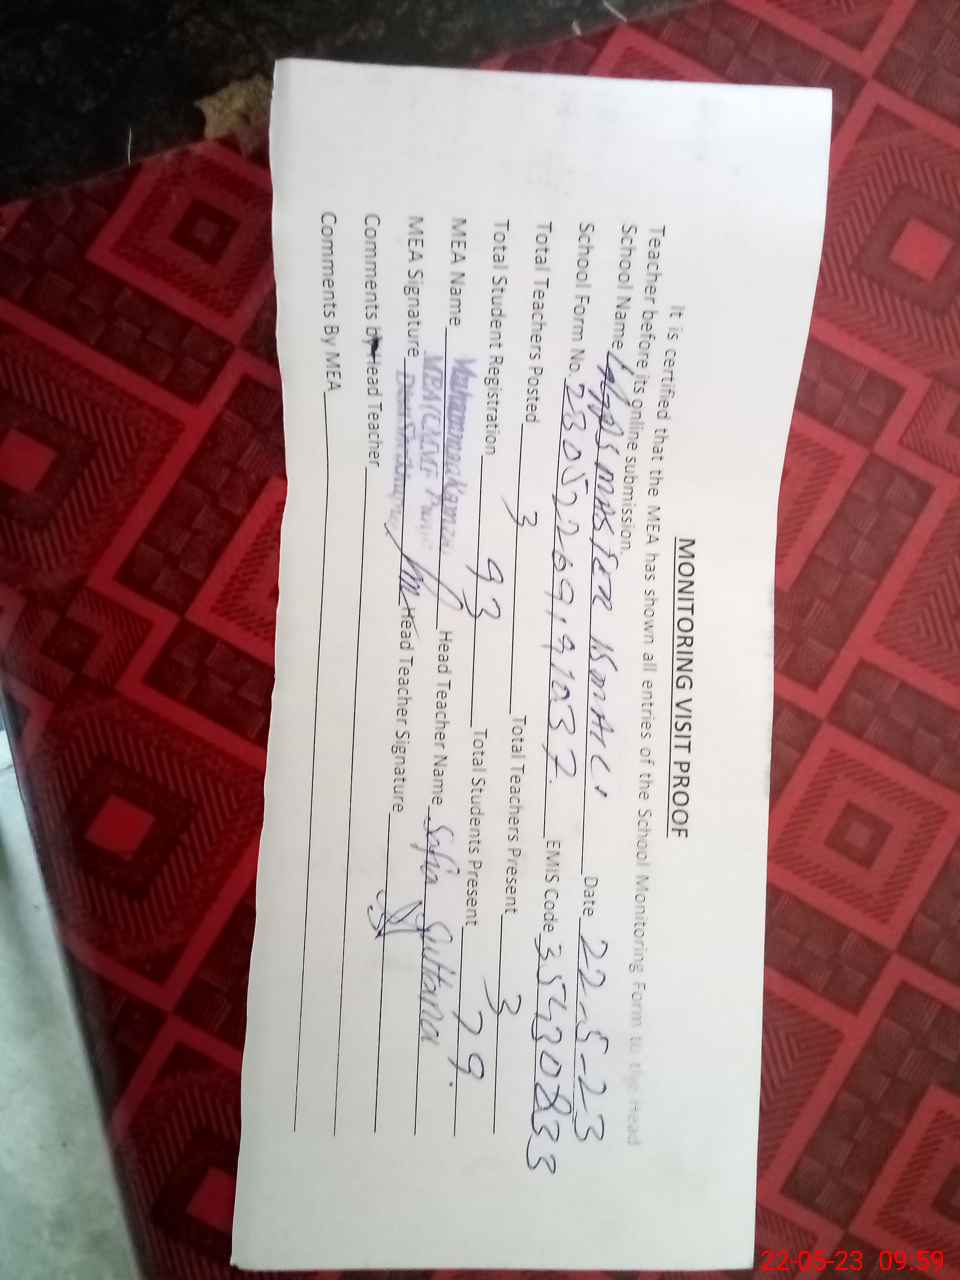 MONITORING VISIT PROOF
It is certified that the MEA has shown all entries of the School Monitoring Form to the Head
Teacher before its online submission.
School Name Date 22-5-23
School Form No. EMIS Code 35430833
Total Teachers Posted 3 Total Teachers Present 3
Total Student Registration 93 Total Students Present 79.
MEA Name Head Teacher Name Safia Sultana
MEA Signature Head Teacher Signature
Comments by Head Teacher
Comments By MEA
22-05-23 09:59